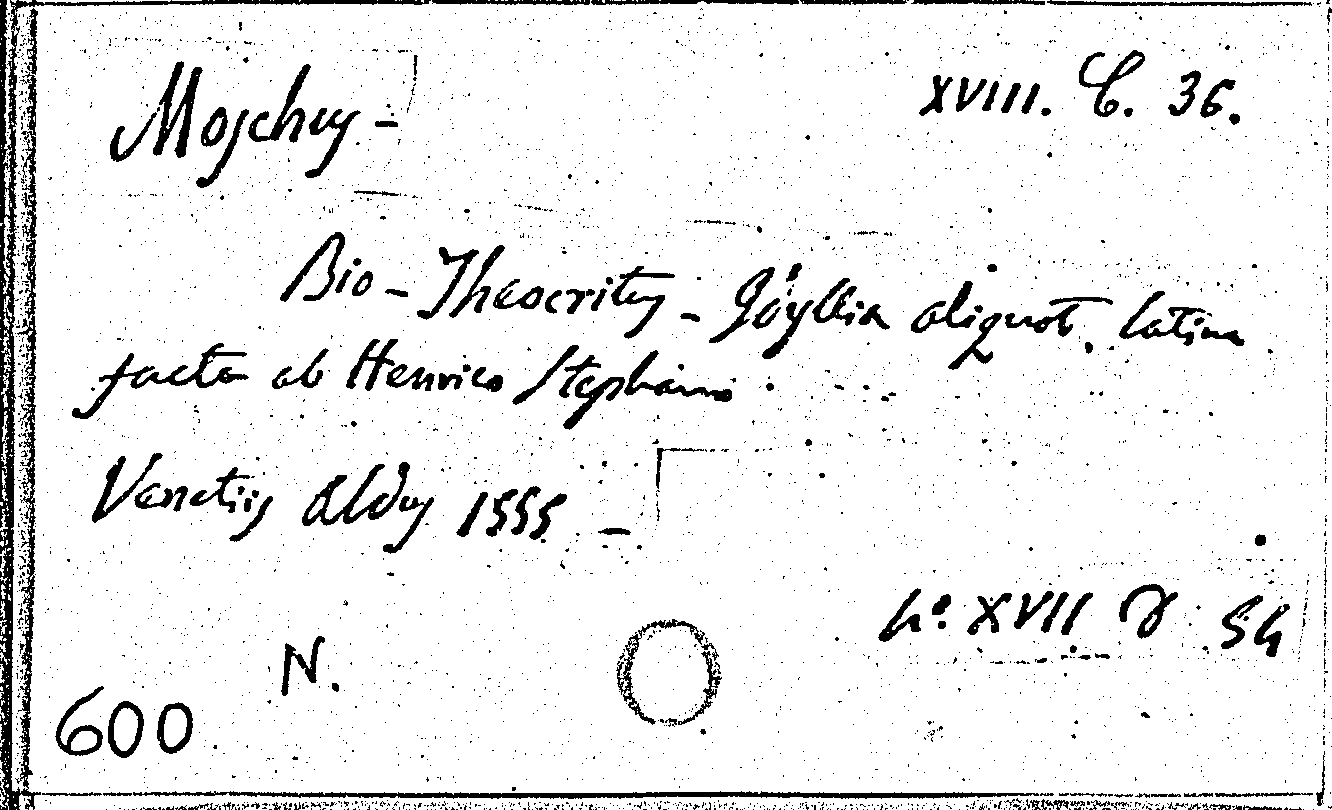 Moschus - XVIII. C. 36.
Bio - Theocritus - Idyllia aliquot, latina
facta ab Henrico Stephano
Venetiis Aldus 1555 -
4º. XVII D 54
N.
600